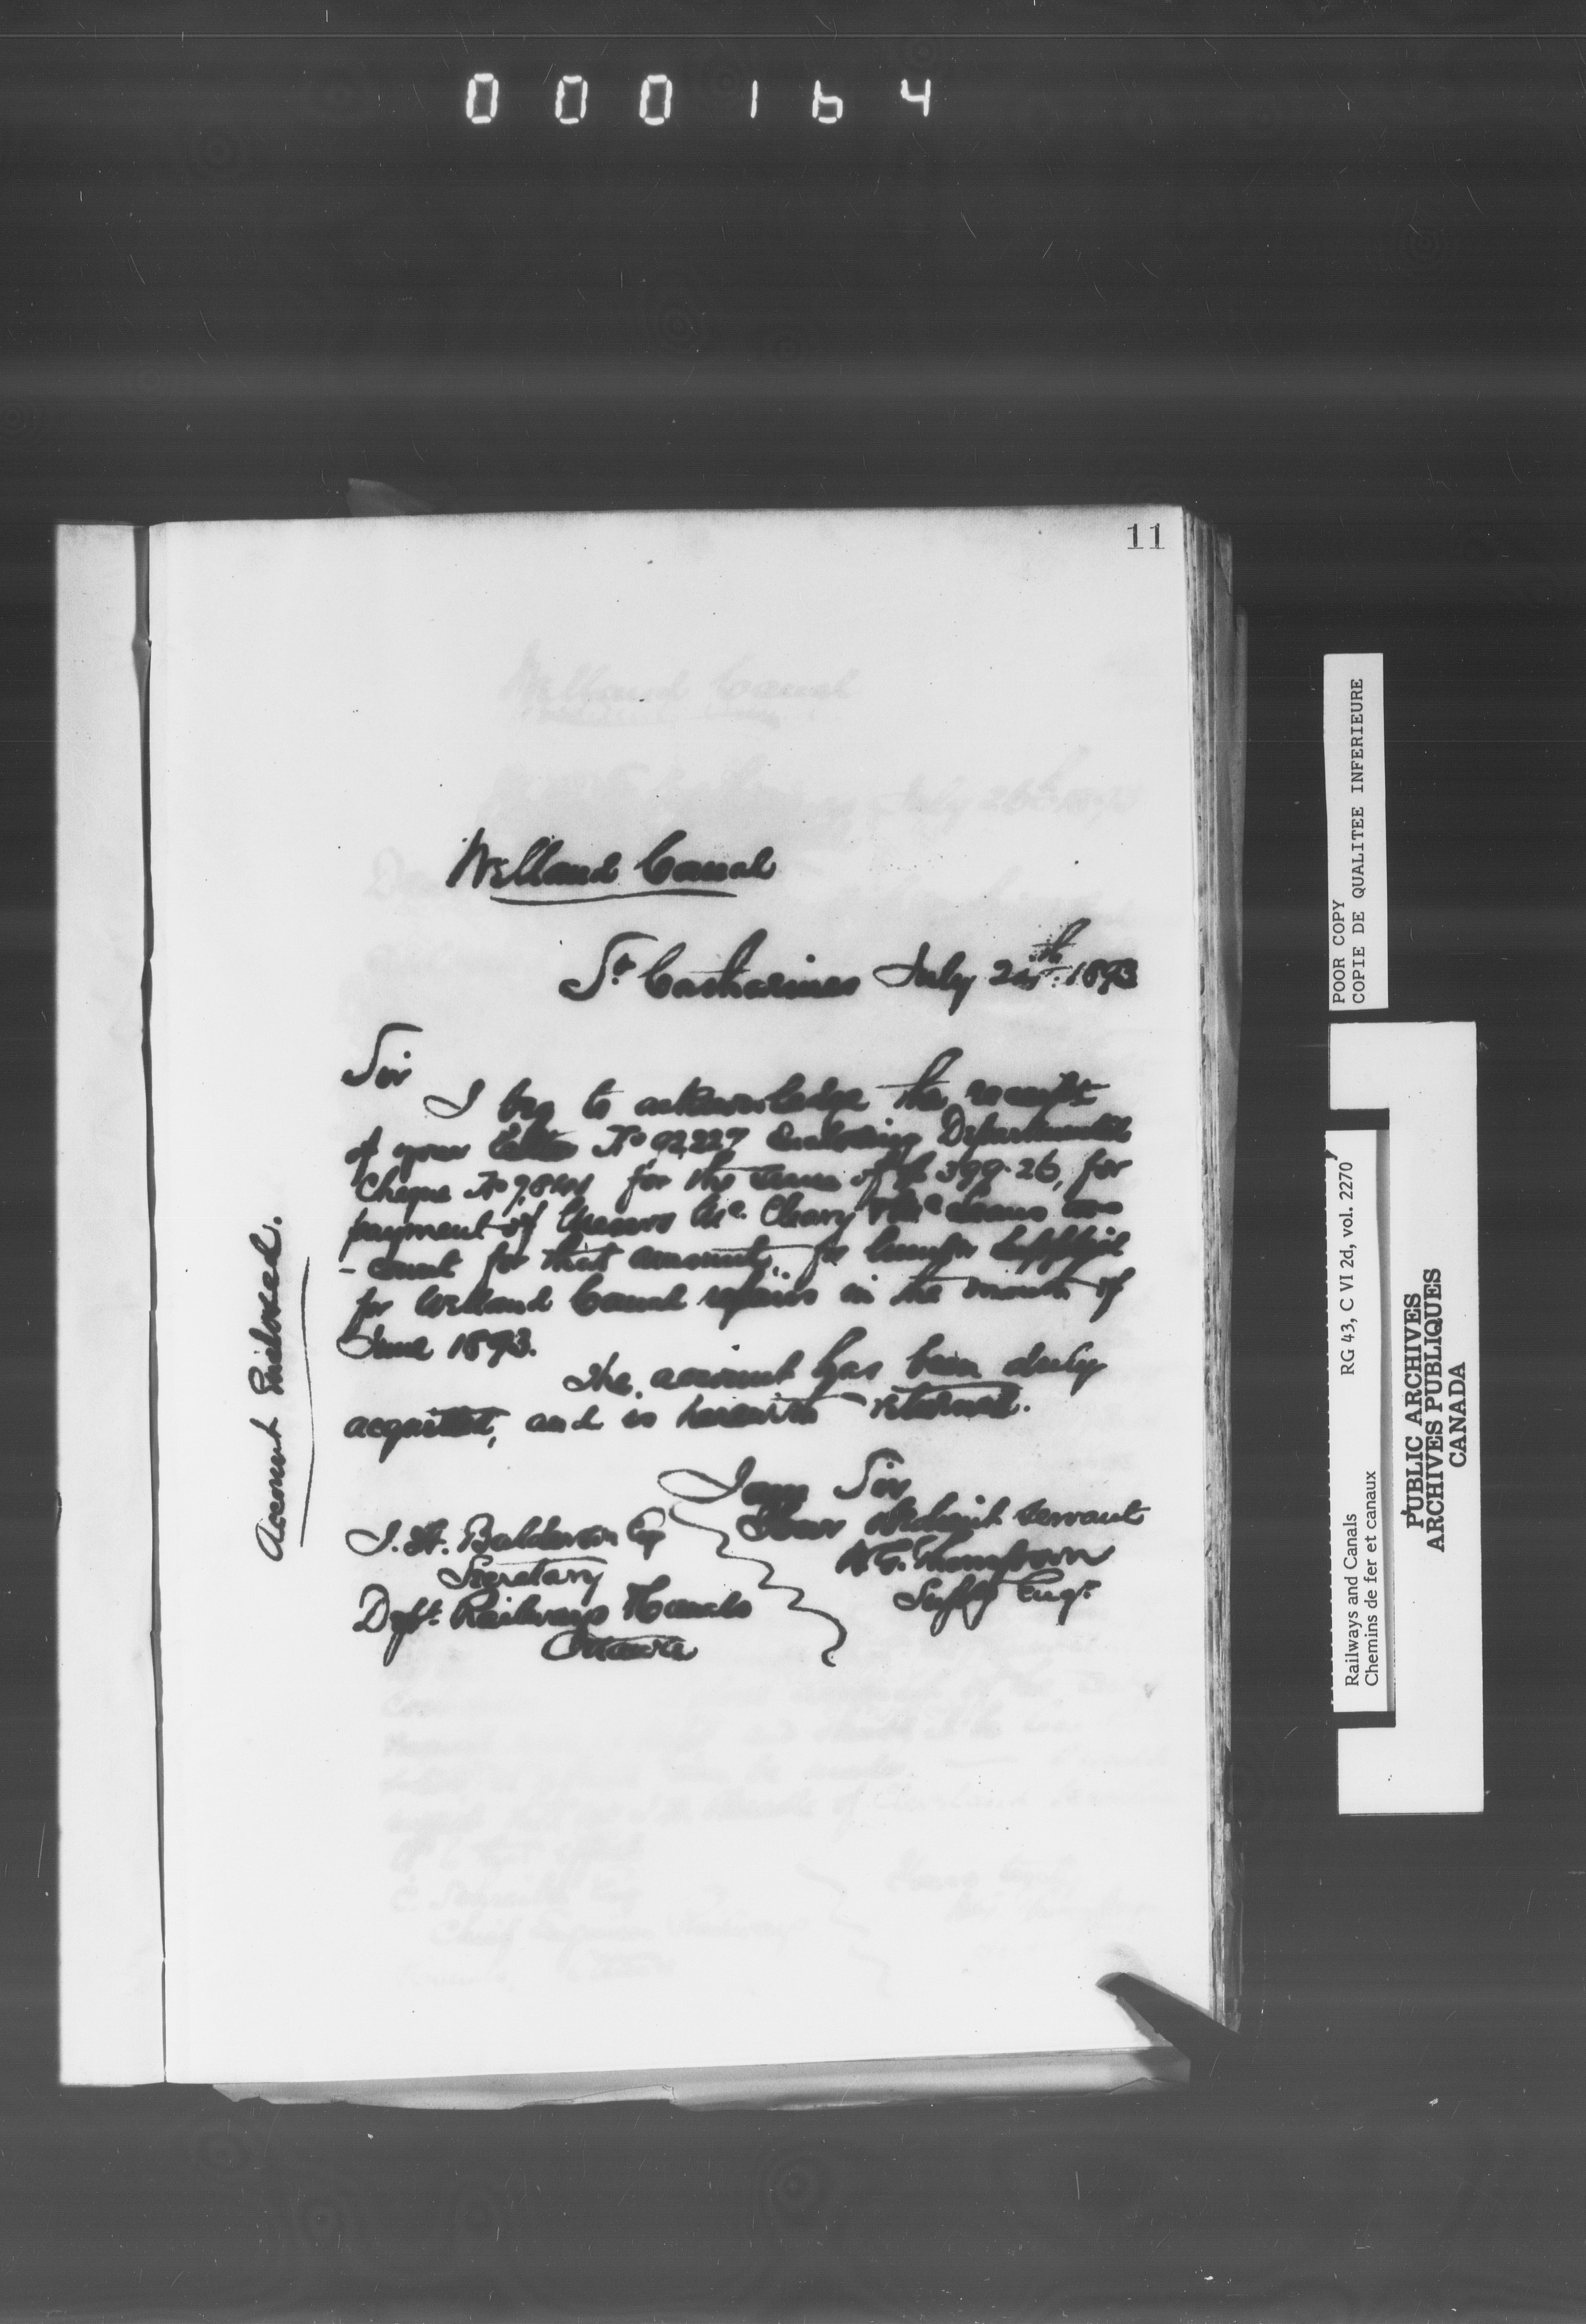 000164
11
Welland Canal
St Catharines July 24th 1893
Sir
I beg to acknowledge the receipt
of your letter No 92,227 Enclosing Departmental
Cheque No for the sum of $ 399.26, for
payment of Messrs Mc Cleary & McLeans ac=
- count for that amount, for lumber supplied
for Welland Canal repairs in the month of
June 1893.
The account has been duly
acquitted, and is herewith returned.
I am Sir
Your obedient servant
W.G. Thompson
Suptg Engr.
J. H. Balderson Esq
Secretary
Dept. Railways & Canals
Ottawa
Account Enclosed.
POOR COPY
COPIE DE QUALITEE INFERIEURE
Railways and Canals RG 43, C VI 2d, vol. 2270
Chemins de fer et canaux
PUBLIC ARCHIVES
ARCHIVES PUBLIQUES
CANADA